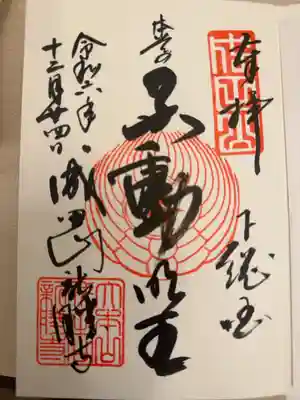 奉拝
下総国
本尊
不動明王
令和六年
十二月廿四日
成田山新勝寺